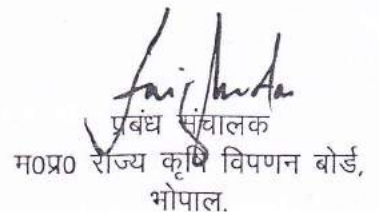 प्रबंध संचालक
म0प्र0 राज्य कृषि विपणन बोर्ड,
भोपाल.